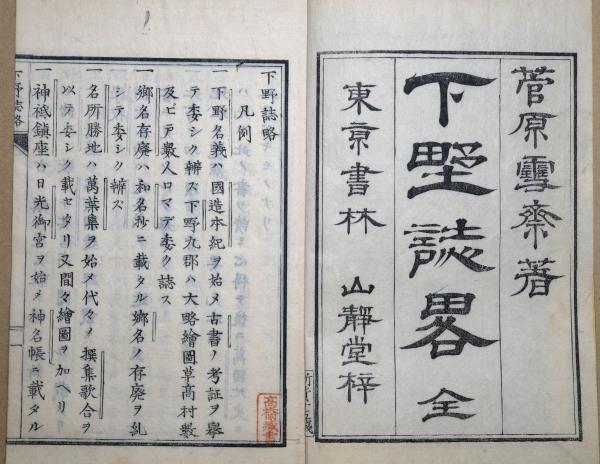 菅原雪斎著
下野誌畧 全
東京書林 山静堂梓
下野誌略
凡例
一下野名義ハ國造本紀ヲ始メ古書ノ考証ヲ擧
テ委シク辨ス下野九郡ハ大略繪圖草高村數
及ビ戸數人口マデ委ク誌ス
一鄉名存廢ハ和名抄ニ載タル鄉名ノ存廢ヲ糺
シテ委シク辨ズ
一名所勝地ハ萬葉集ヲ始メ代々ノ撰集歌合ヲ
以テ委シク載セタリ又間々繪圖ヲ加ヘリ
一神祇鎮座ハ日光御宮ヲ始メ神名帳ニ載タル
下野誌略
高橋藏書